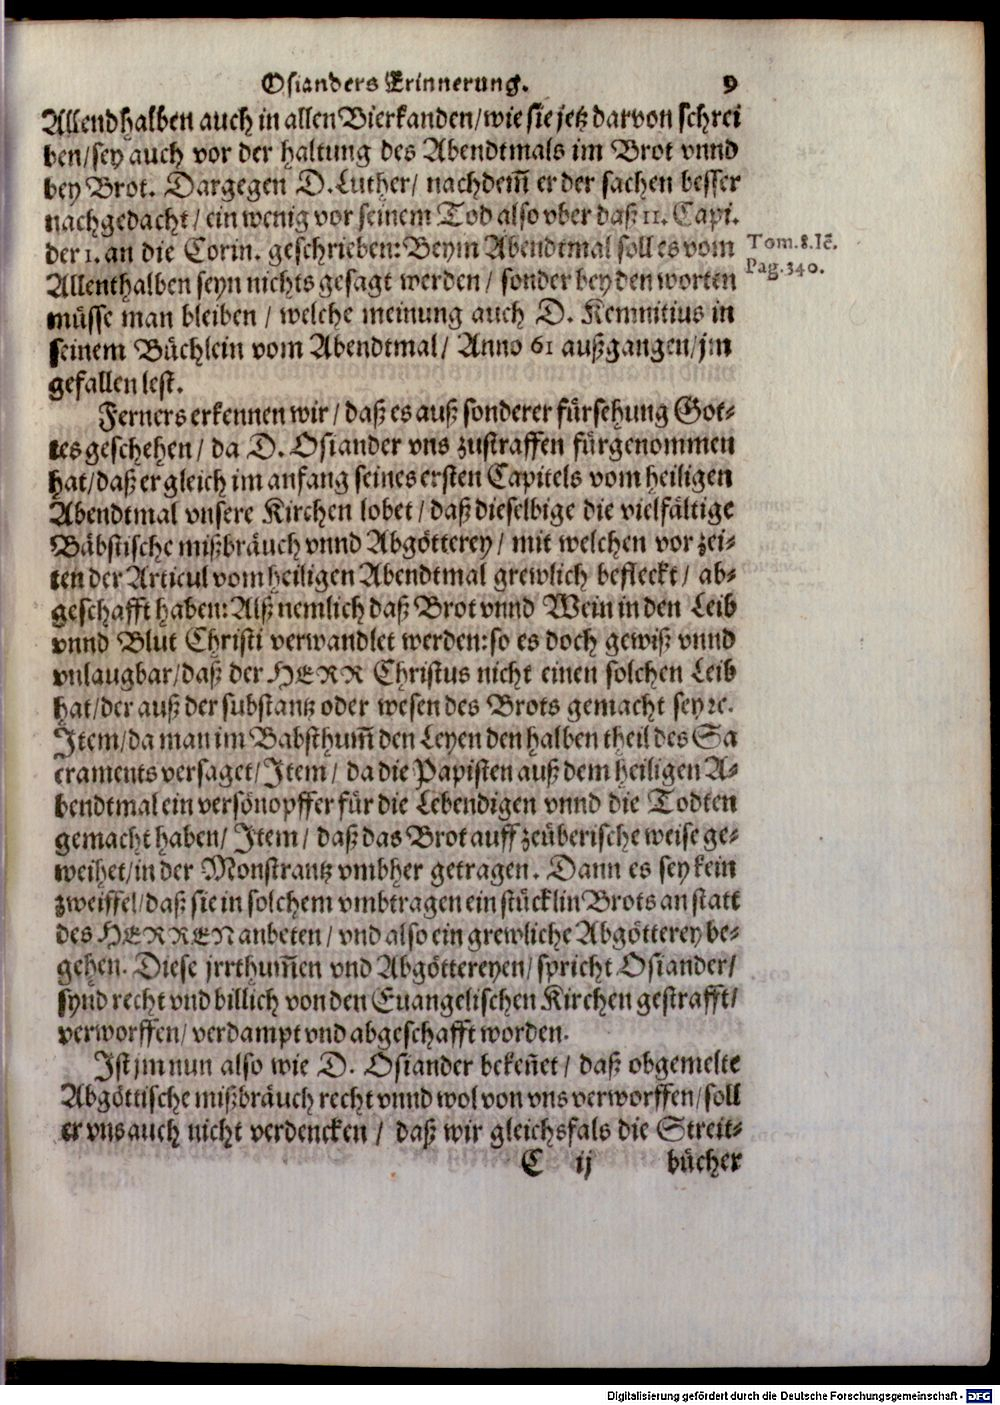 Osianders Erinnerung. 9
Allendhalben auch in allen Bierkanden/wie sie jetz darvon schrei
ben/sey auch vor der haltung des Abendtmals im Brot vnnd
bey Brot. Dargegen D. Luther/ nachdem̃ er der sachen besser
nachgedacht/ ein wenig vor seinem Tod also vber daß 11. Capi.
der 1. an die Corin. geschrieben: Beym Abendtmal soll es vom
Tom. 8. Iẽ.
Pag. 340.
Allenthalben seyn nichts gesagt werden/ sonder bey den worten
müsse man bleiben/ welche meinung auch D. Kemnitius in
seinem Büchlein vom Abendtmal/ Anno 61 außgangen/jm
gefallen lest.
Ferners erkennen wir/ daß es auß sonderer fürsehung Got⸗
tes geschehen/ da D. Osiander vns zustraffen fürgenommen
hat/daß er gleich im anfang seines ersten Capitels vom heiligen
Abendtmal vnsere Kirchen lobet/ daß dieselbige die vielfältige
Bäbstische mißbräuch vnnd Abgötterey/ mit welchen vor zei⸗
ten der Articul vom heiligen Abendtmal grewlich befleckt/ ab⸗
geschafft haben: Alß nemlich daß Brot vnnd Wein in den Leib
vnnd Blut Christi verwandlet werden: so es doch gewiß vnnd
vnlaugbar/daß der HERR Christus nicht einen solchen Leib
hat/der auß der substantz oder wesen des Brots gemacht sey ꝛc.
Item/da man im Babsthum̃ den Leyen den halben theil des Sa
craments versaget/Item/ da die Papisten auß dem heiligen A⸗
bendtmal ein versönopffer für die Lebendigen vnnd die Todten
gemacht haben/ Item/ daß das Brot auff zeüberische weise ge⸗
weihet/in der Monstrantz vmbher getragen. Dann es sey kein
zweiffel/daß sie in solchem vmbtragen ein stücklin Brots an statt
des HERREN anbeten/ vnd also ein grewliche Abgötterey be⸗
gehen. Diese jrrthum̃en vnd Abgöttereyen/ spricht Osiander/
synd recht vnd billich von den Euangelischen Kirchen gestrafft/
verworffen/ verdampt vnd abgeschafft worden.
Ist jm nun also wie D. Osiander beken̄et/ daß obgemelte
Abgöttische mißbräuch recht vnnd wol von vns verworffen/soll
er vns auch nicht verdencken/ daß wir gleichsfals die Streit⸗
C ij bücher
Digitalisierung gefördert durch die Deutsche Forschungsgemeinschaft - DFG